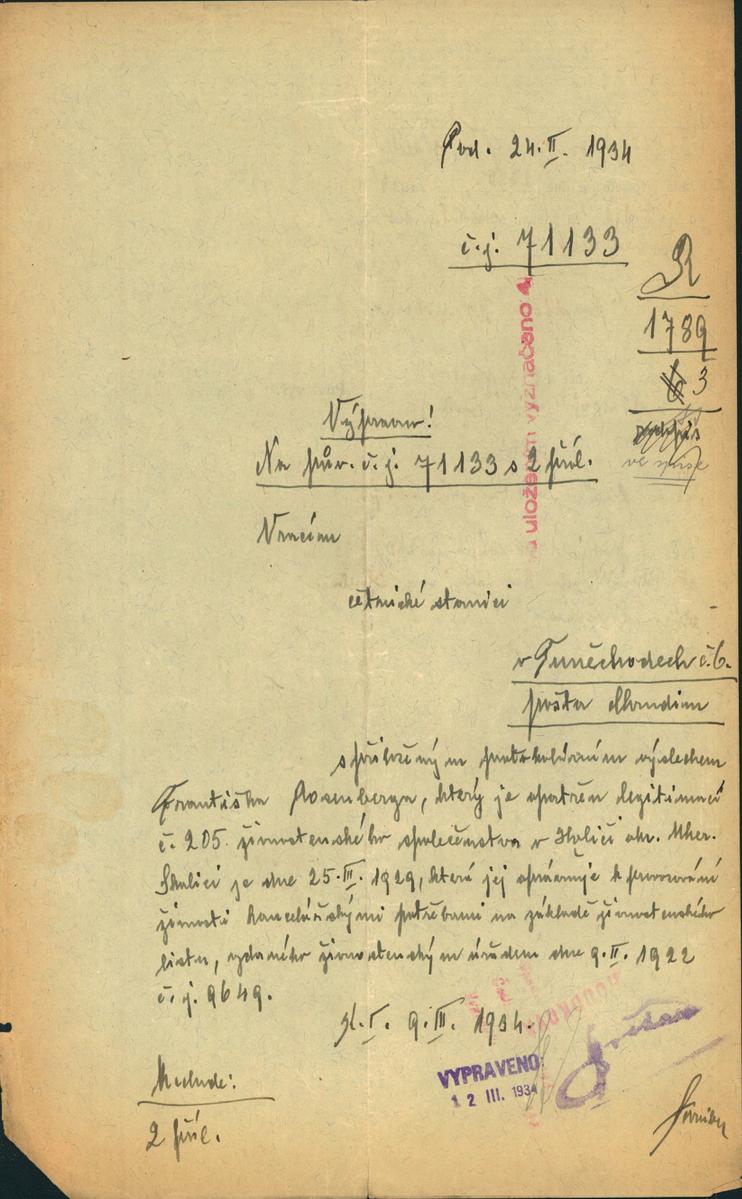 Pod. 24.II. 1934
č.j. 71133
R
1789
3
uložením vyznačeno
Výprava!
Na pův. č.j. 71133 s 2 příl.
ve spise
Vracím
četnické stanici
v Tuněchodech č. 6.
pošta Chrudim
s přiloženým protokolárním výslechem
Františka Rosenberga, který je opatřen legitimací
č. 205. živnostenského společenstva v Holíči okr. Uher.
Skalici je dne 25.III. 1929, která jej opravňuje k provozování
živnosti kancelářskými potřebami na základě živnostenského
listu, vydaného živnostenským úřadem dne 9.II. 1922
č.j. 9649.
9.III. 1934.
VYPRAVENO:
12 III. 1934
2 příl.